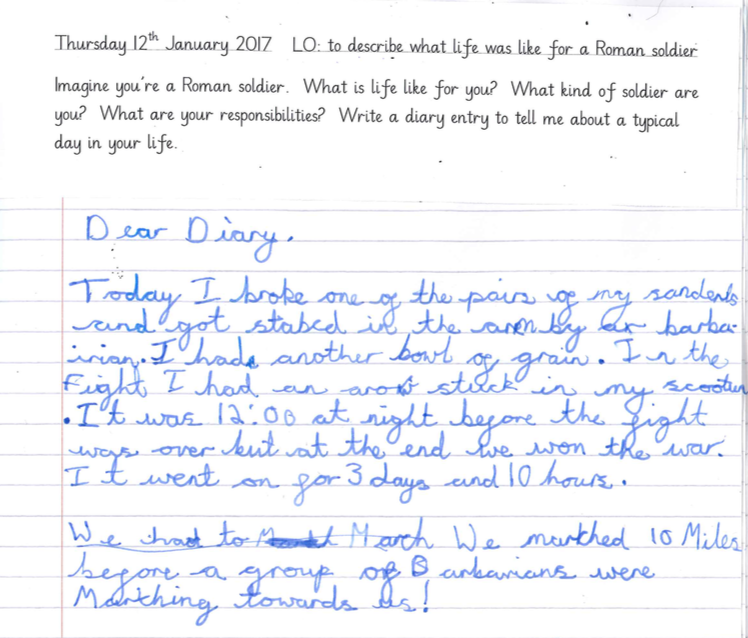 Thursday 12th January 2017 LO: to describe what life was like for a Roman soldier
Imagine you're a Roman soldier. What is life like for you? What kind of soldier are
you? What are your responsibilities? Write a diary entry to tell me about a typical
day in your life.
Dear Diary.
Today I broke one of the pairs of my sanderls
and got stabed in the arm by ar barba-
irian. I hade another bowl of grain. In the
Fight I had an arow stuck in my scootum
. It was 12:00 at night before the fight
was over but at the end we won the war.
It went on for 3 days and 10 hours.
We had to March We marthed 10 Miles
before a group of Barbarians were
Marthing towards us!